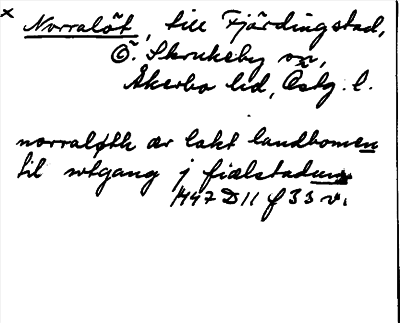 x Norralöt, till Fjärdingstad,
Ö. Skrukeby sn,
Åkerbo hd, Östg. l.
norraløth ær lakt landbomen
til wtgang j fiælstadum
1447 D 11 f 33 v.